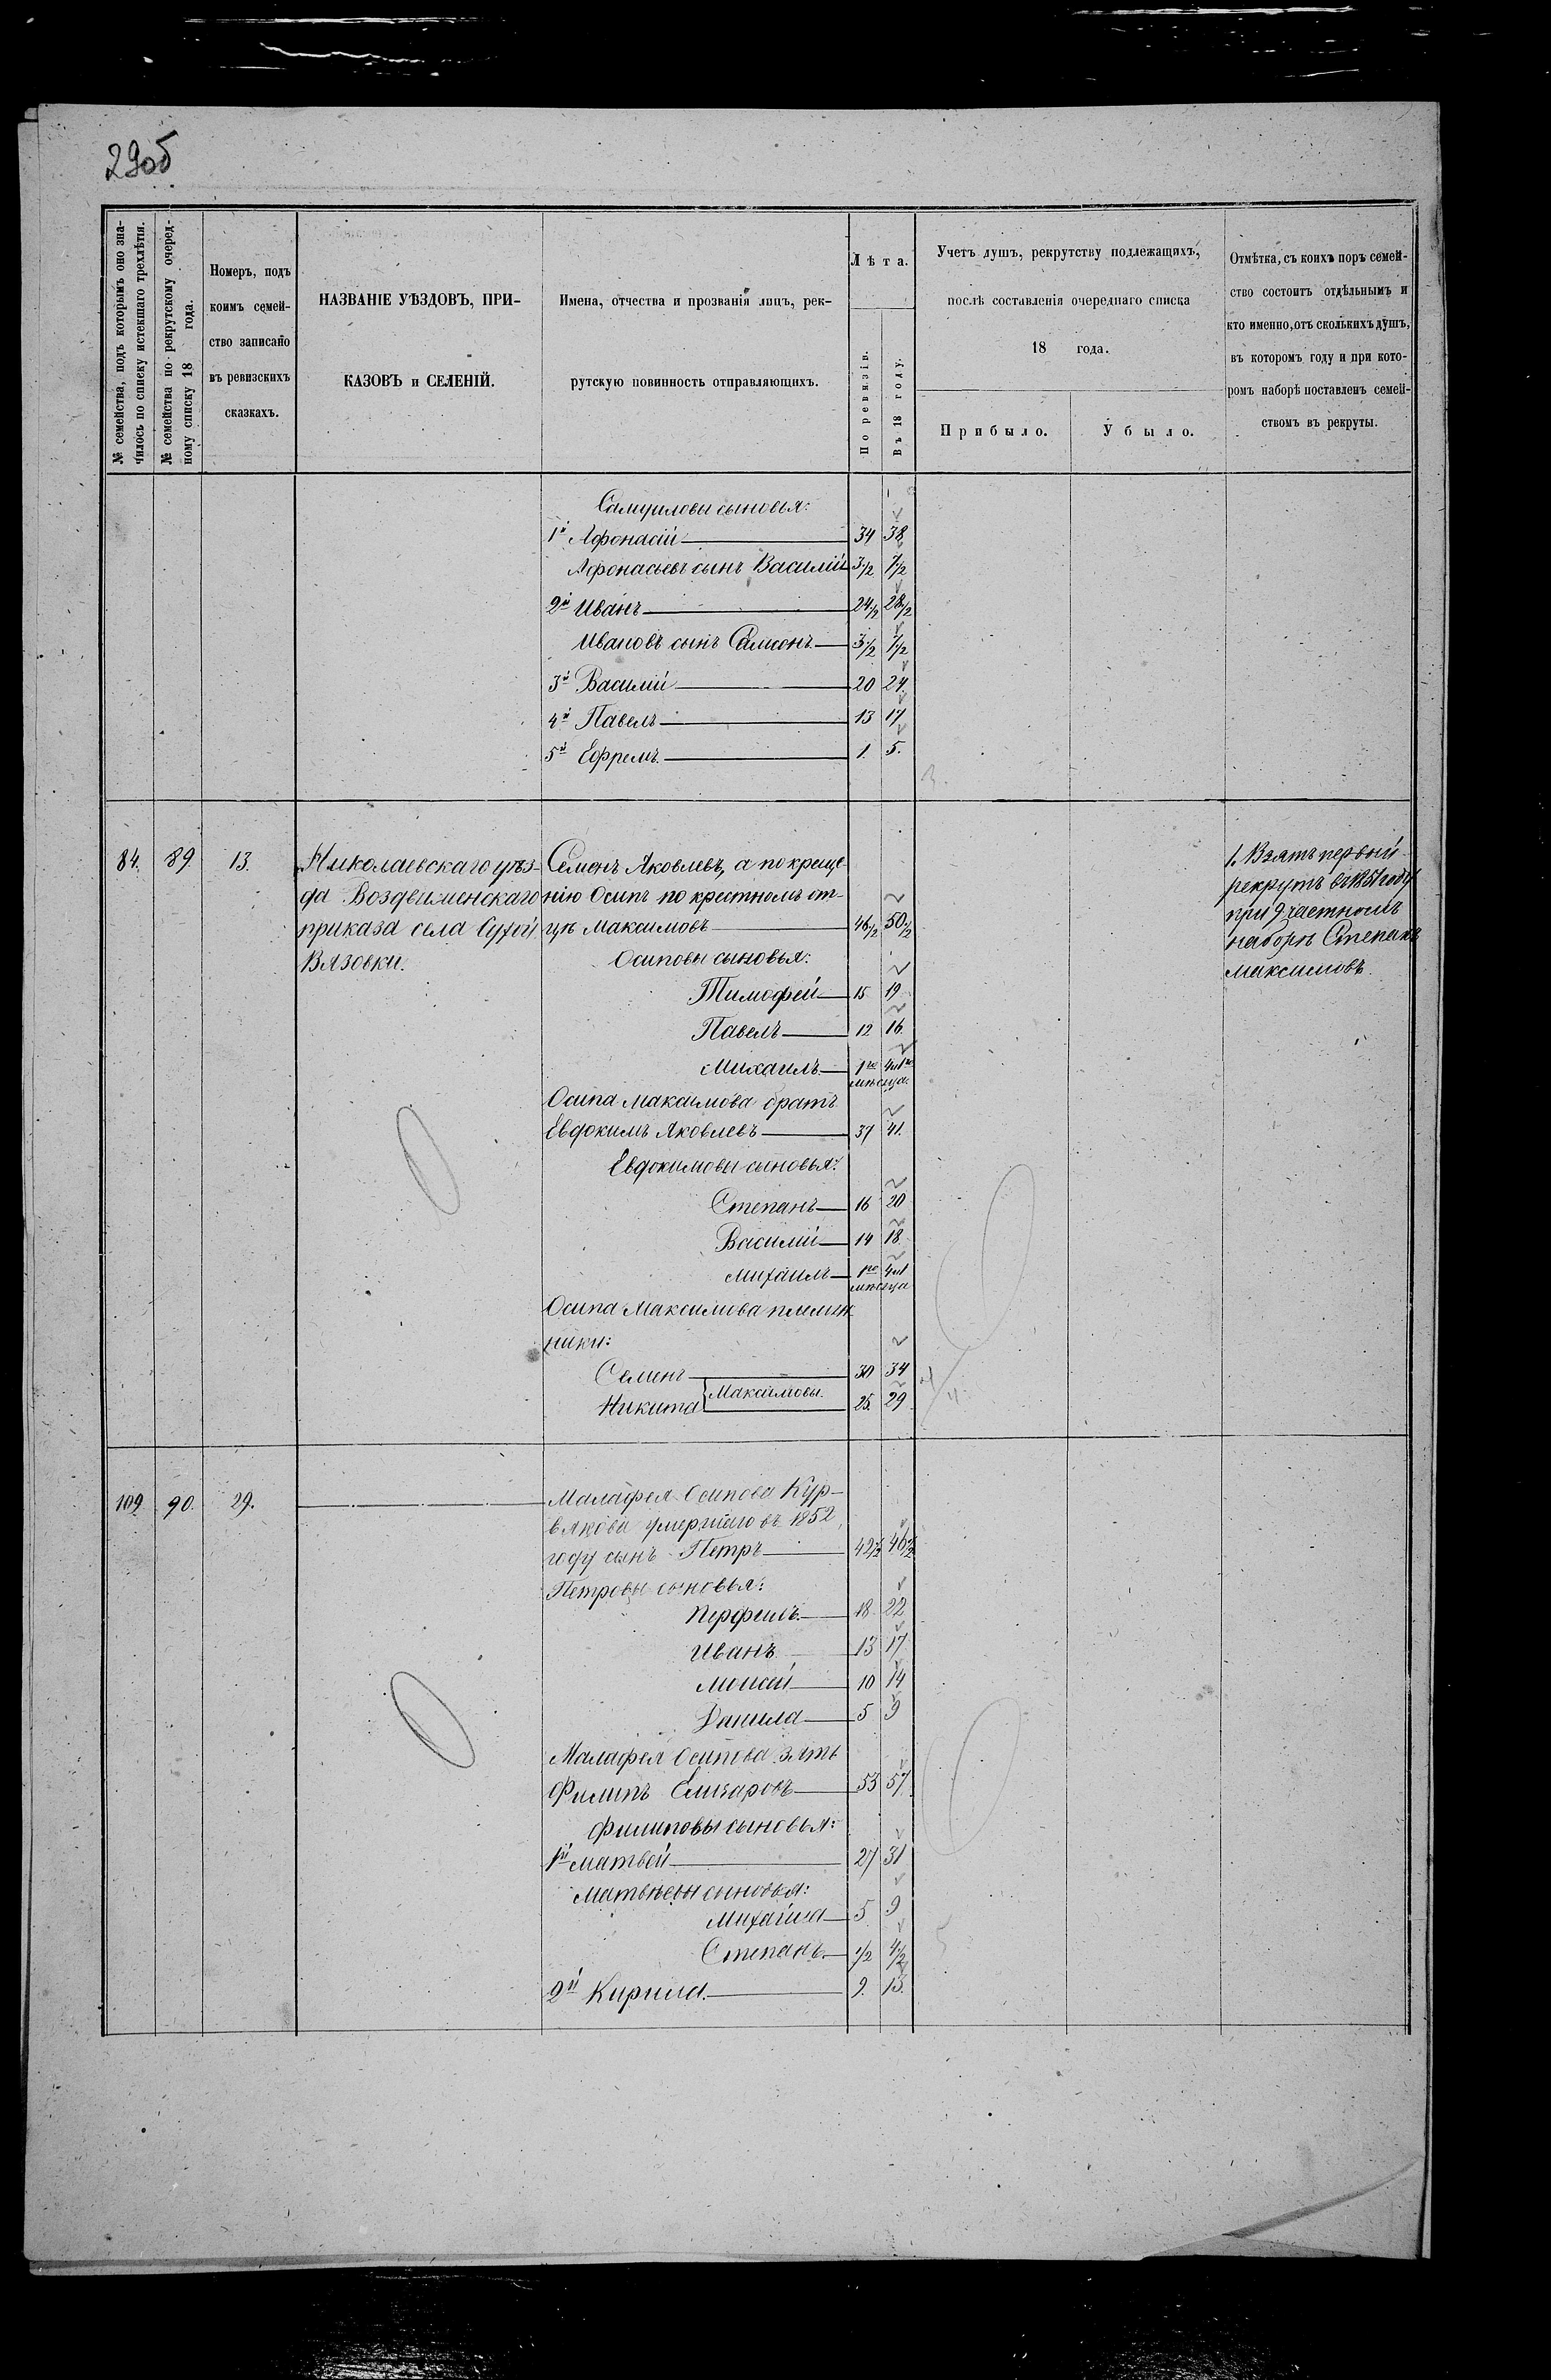 29об
№ семейства, подъ которымъ оно зна-
чилось по списку истекшаго трехлѣтія.
№ семейства по рекрутскому очеред-
ному списку 18 года.
Номеръ, подъ
коимъ семей-
ство записано
въ ревизскихъ
сказкахъ.
НАЗВАНІЕ УѢЗДОВЪ, ПРИ-
КАЗОВЪ и СЕЛЕНІЙ.
Имена, отчества и прозванія лицъ, рек-
рутскую повинность отправляющихъ.
Лѣта.
По ревизіи.
Въ 18 году.
Учетъ душъ, рекрутству подлежащихъ,
послѣ составленія очереднаго списка
18 года.
Прибыло.
Убыло.
Отмѣтка, съ коихъ поръ семей-
ство состоитъ отдѣльнымъ и
кто именно, отъ сколькихъ душъ,
въ которомъ году и при кото-
ромъ наборѣ поставленъ семей-
ствомъ въ рекруты.
Самуиловы сыновья:
1й Афонасій 34 38
Афонасьевъ сынъ Василій 3 1/2 7 1/2
2й Иванъ 24 1/2 28 1/2
Ивановъ сынъ Самсонъ 3 1/2 7 1/2
3й Василій 20 24.
4й Павелъ 13 17
5й Ефремъ. 1. 5.
3.
84. 89. 13.
Николаевскаго уѣз-
да Воздвиженскаго
приказа села Сухой
Вязовки.
Семенъ Яковлевъ, а по креще-
нію Осипъ по крестномъ от-
цѣ Максимовъ 46 1/2 50 1/2
Осиповы сыновья:
Тимофей 15 19
Павелъ 12 16.
Михаилъ 1го 4 и 1го
мѣсяца.
Осипа Максимова братъ
Евдокимъ Яковлевъ 37 41.
Евдокимовы сыновья:
Степанъ 16 20
Василій 14 18
Михаилъ 1го 4 и 1
мѣсяца
Осипа Максимова племян
ники:
Семенъ 30 34
Максимовы.
Никита 25. 29
1. Взятъ первый
рекрутъ въ 1851 году
при 9 частномъ
наборѣ Степанъ
Максимовъ.
109. 90. 29.
Малафея Осипова Кур-
вякова умершаго въ 1852
году сынъ Петръ 42 1/2 46 1/2
Петровы сыновья:
Перфилъ 18 22
Иванъ 13 17
Моисей 10 14
Данила 5 9
Малафея Осипова зять
Филипъ Елизаровъ 53 57
Филиповы сыновья:
1й Матвей 27 31
Матвѣевы сыновья:
Михаила 5 9
Степанъ 1/2 4 1/2
2й Кирила. 9. 13.
5